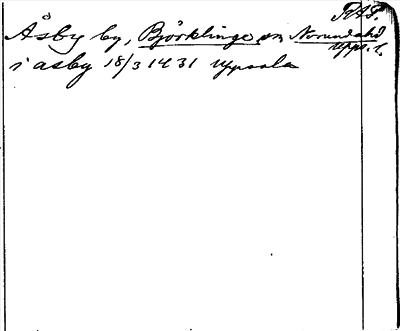 RAP.
Åsby by, Björklinge sn Norunda hd
Upps. l.
i asby 18/3 1431 Uppsala